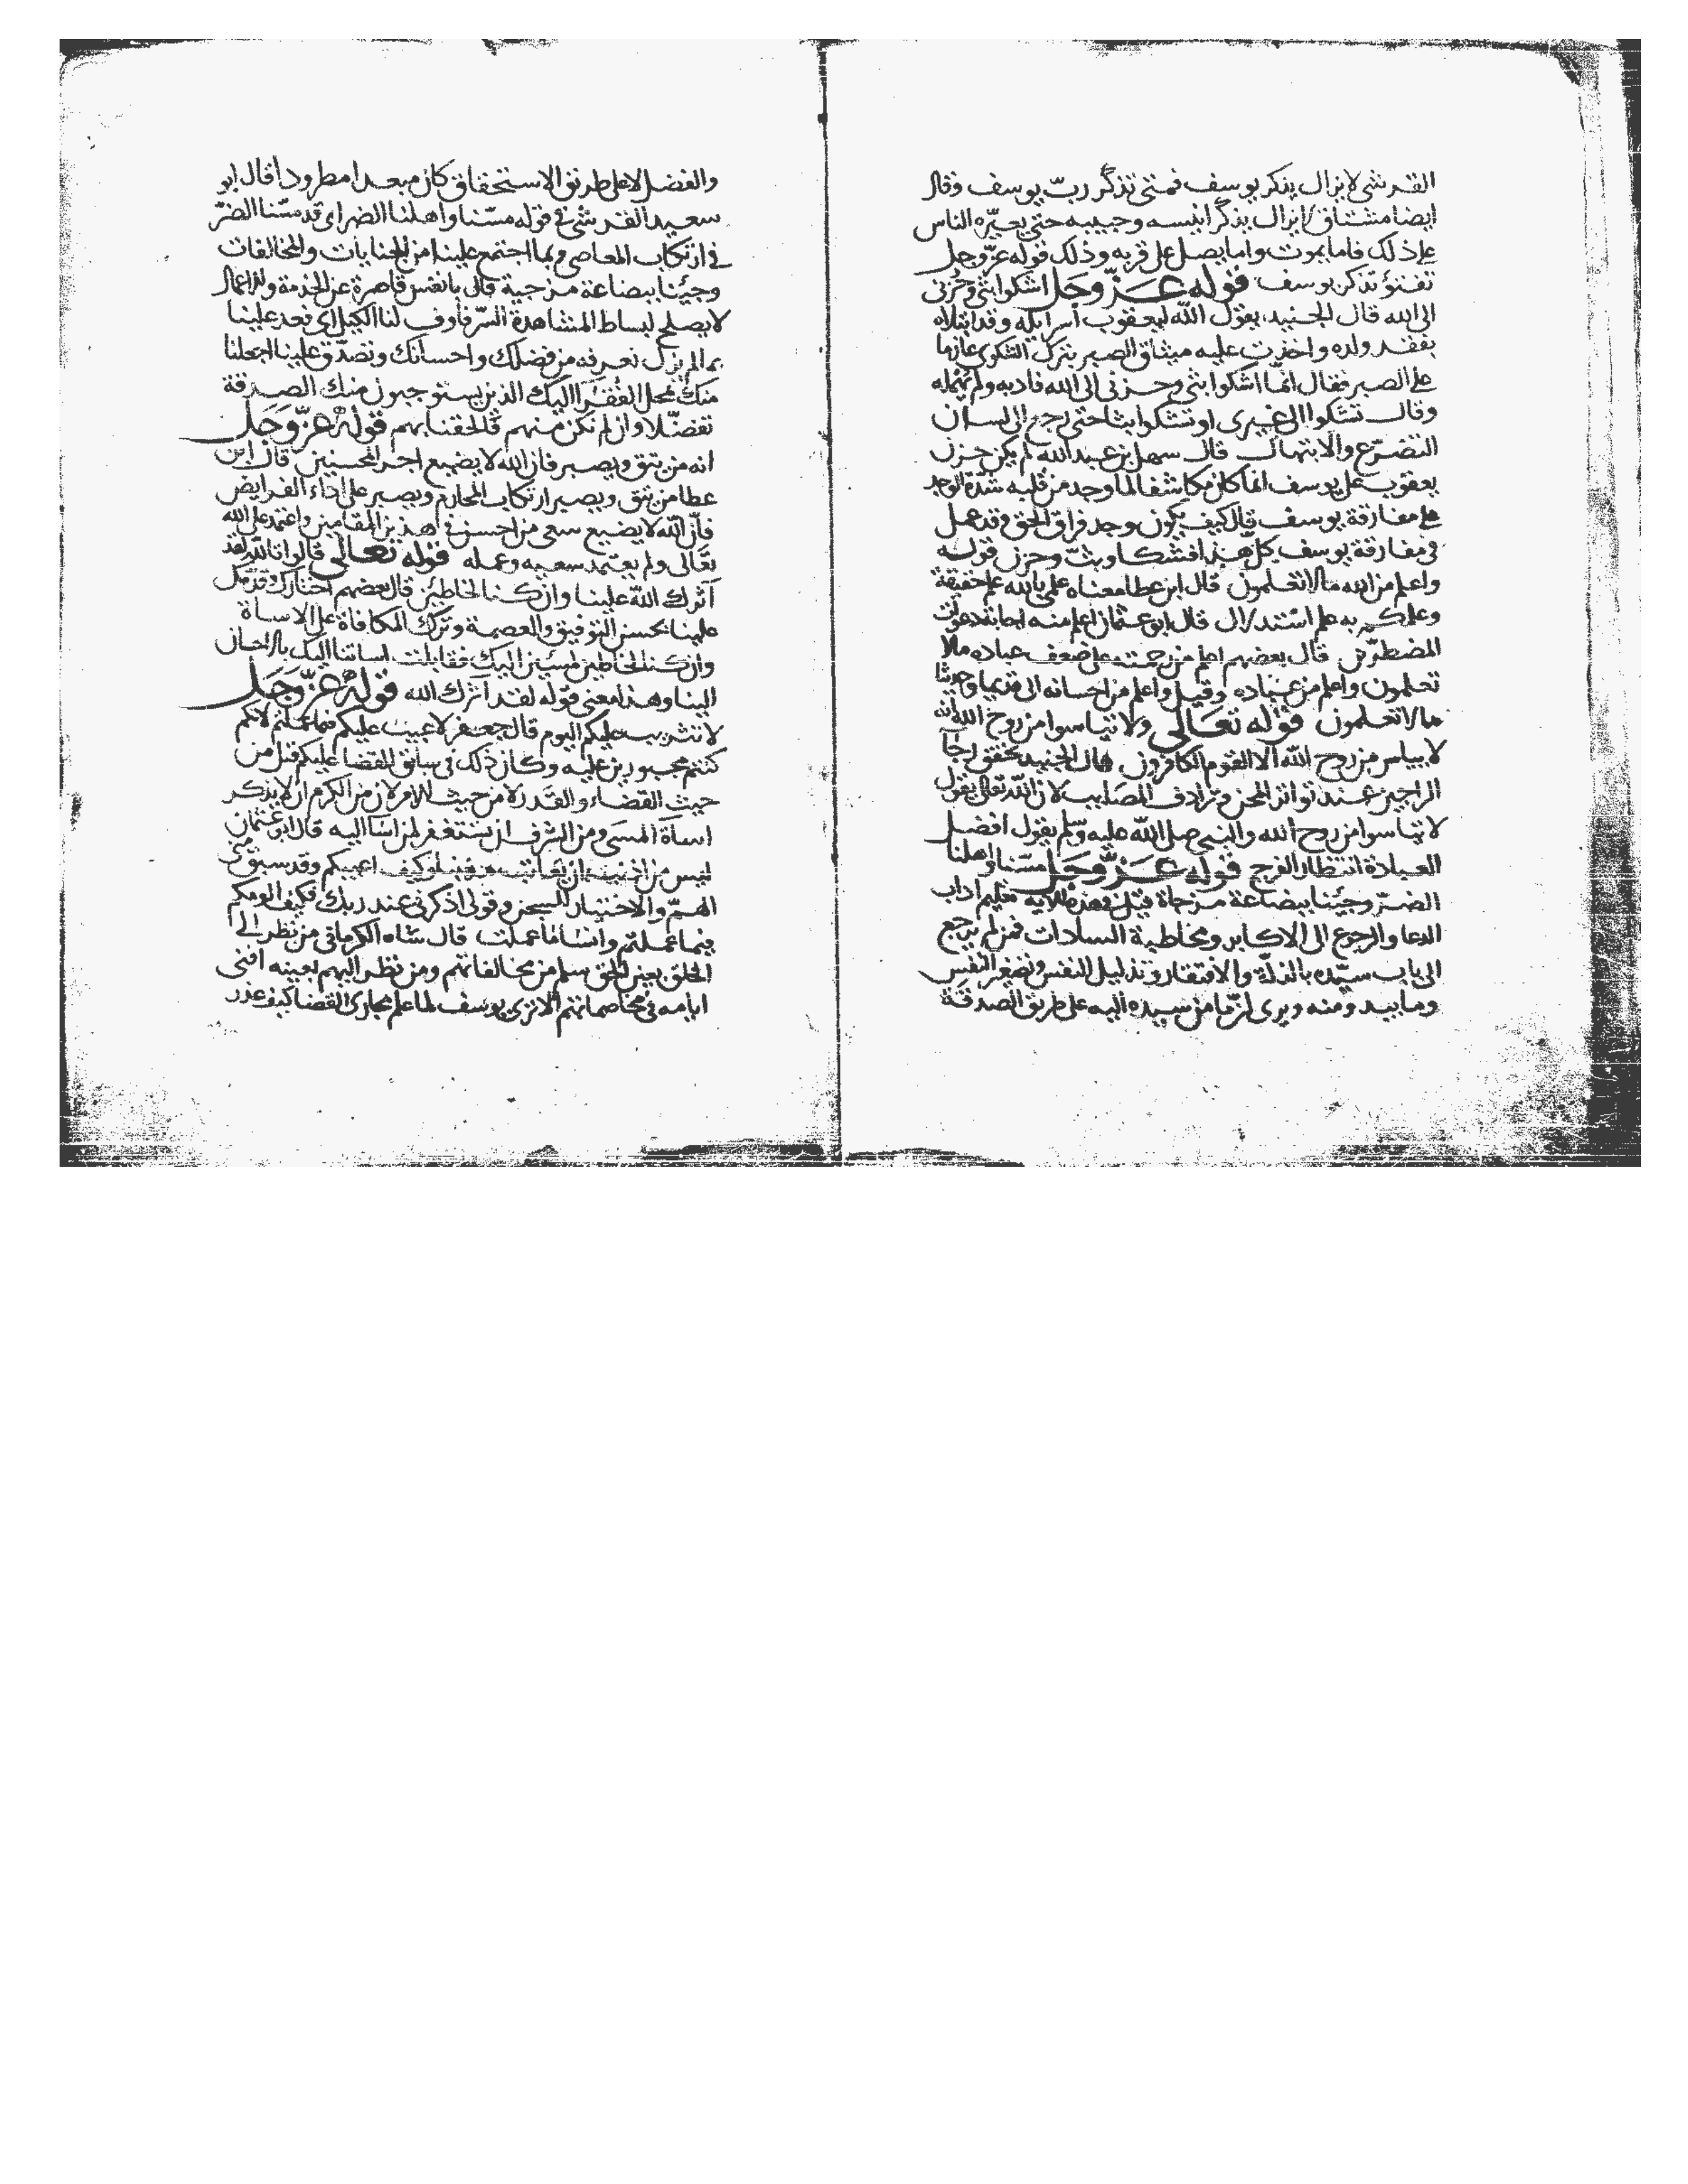 القرشى لا يزال يذكر يوسف فمتى تذكر ربّ يوسف وقال
ايضا مشتاق لا يزال يذكر انيسه وحبيبه حتى يعيّره الناس
على ذلك فاما يموت واما يصل على قربه وذلك قوله عزّ وجل
تفتؤ تذكر يوسف قوله عَزّ وجَل اشكوا بثى وحُزنى
الى الله قال الجنيد يقول الله ليعقوب اسرايله وقد ابتلاه
بفقد ولده واخذت عليه ميثاق الصبر بترك الشكوى عازما
على الصبر فقال انمّا اشكوا بثى وحزنى الى الله فادبه ولم يمهله
وقال تشكوا الى غيرى او تشكوا بثا حتى رجع الى لسان
التضرّع والابتهال قال سهل بن عبد الله لم يكن حزن
يعقوب على يوسف انما كان مكاشفا لما وجد من قلبه شدّة الوجد
على مفارقة يوسف قال كيف يكون وجد فراق الحق وقد عمل
فى مفارقة يوسف كل هذا فشكا وبثّ وحزن قوله
واعلم من الله ما لا تعلمون قال ابن عطا معناه علمى بالله علم حقيقة
وعلمكم به علم استدلال قال ابو عثمان اعلم منه اجابته دعوة
المضطرّين قال بعضهم اعلم من رحمته على ضعف عباده ما لا
تعلمون واعلم من عباده وقيل واعلم من احسانه الى قديما وحديثا
ما لا تعلمون قوله تعَالى ولا تياسوا من روح الله انه
لا يياس من روح الله الا القوم الكافرون قال الجنيد تحقق رجآ
الراجين عند تواتر المحن وترادف المصايب لان الله تعالى يقول
لا تياسوا من روح الله والنبى صلى الله عليه وسلم يقول افضل
العبادة انتظار الفرج قوله عَزّ وجَل مسّنا واهلنا
الضرّ وجئنا ببضاعة مزجاة قيل فى هذه الاية تعليم اداب
الدعا والرجوع الى الاكابر ومخاطبة السادات فمن لم يرجع
الى باب سيّده بالذلّة والافتقار وتذليل النفس وتصغير النفس
وما يبدو منه ويرى ان ما من سيده اليه على طريق الصدقة
والفضل لا على طريق الاستحقاق كان مبعدا مطرودا قال ابو
سعيد القرشى فى قوله مسّنا واهلنا الضر اى قد مسّنا الضرّ
فى ارتكاب المعاصى وبما اجتمع علينا من الجنايات والمخالفات
وجيئنا ببضاعة مزجية قال بانفس قاصرة عن الخدمة واعمال
لا يصلح لبساط المشاهدة السّر فاوف لنا الكيل اى فعد علينا
بما لم يزل نعرفه من فضلك واحسانك وتصدّق علينا اجعلنا
منك محل الفقرا اليك الذين يستوجبون منك الصدقة
تفضّلا وان لم نكن منهم فالحقنا بهم قوله عَزّ وَجَل
انه من يتق ويصبر فان الله لا يضيع اجر المحسنين قال ابن
عطا من يتق ويصبر ارتكاب المحارم ويصبر على اداء الفرايض
فانّ الله لا يضيع سعى من احسن فى هذين المقامين واعتمد على الله
تعالى ولم يعتمد سعيه وعمله قوله تعالى قالوا تالله لقد
آثرك الله علينا وان كنا لخاطئين قال بعضهم اختارك وقدّمك
علينا بحسن التوفيق والعصمة وترك المكافاة على الاساة
وان كنا لخاطين لمسئين اليك فقابلت اساتنا اليك بالاحسان
الينا وهذا معنى قوله لقد آثرك الله قوله عزّ وَجَل
لا تثريب عليكم اليوم قال جعفر لا عيب عليكم فيما عملتم لانكم
كنتم مجبورين عليه وكان ذلك فى سابق القضا عليكم قبل من
حيث القضاء والقدر لا من حيث الامر لان من الكرم ان لا يذكر
اساة المسئ ومن الشرف ان يستغفر لمن اسا اليه قال ابو عثمان
ليس من اذنب ان يعاتب مذنبا وكيف اعيبكم وقد سبق منى
الهمّ والاختيار السجن وقولى اذكرنى عند ربك فكيف الومكم
فيما عملتم وانسا ما عملت قال شاه الكرمانى من نظر الى
الخلق بعين الحق سلم من مخالفاتهم ومن نظر اليهم بعينه افنى
ايامه فى مخاصماتهم الا ترى يوسف لما علم مجارى القضا كيف عذر